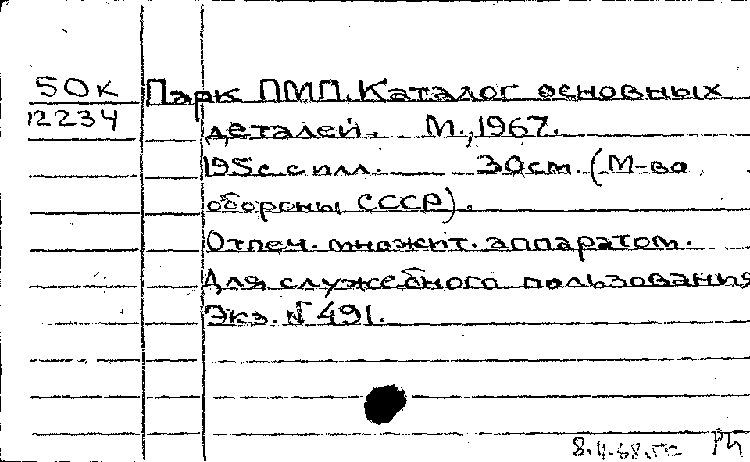 50к Парк ПМП. Каталог основных
12234 деталей. М., 1967.
195с. с илл. 30см. (М-во
обороны СССР).
Отпеч. множит. аппаратом.
Для служебного пользования
Экз. № 491.
8.4.68.